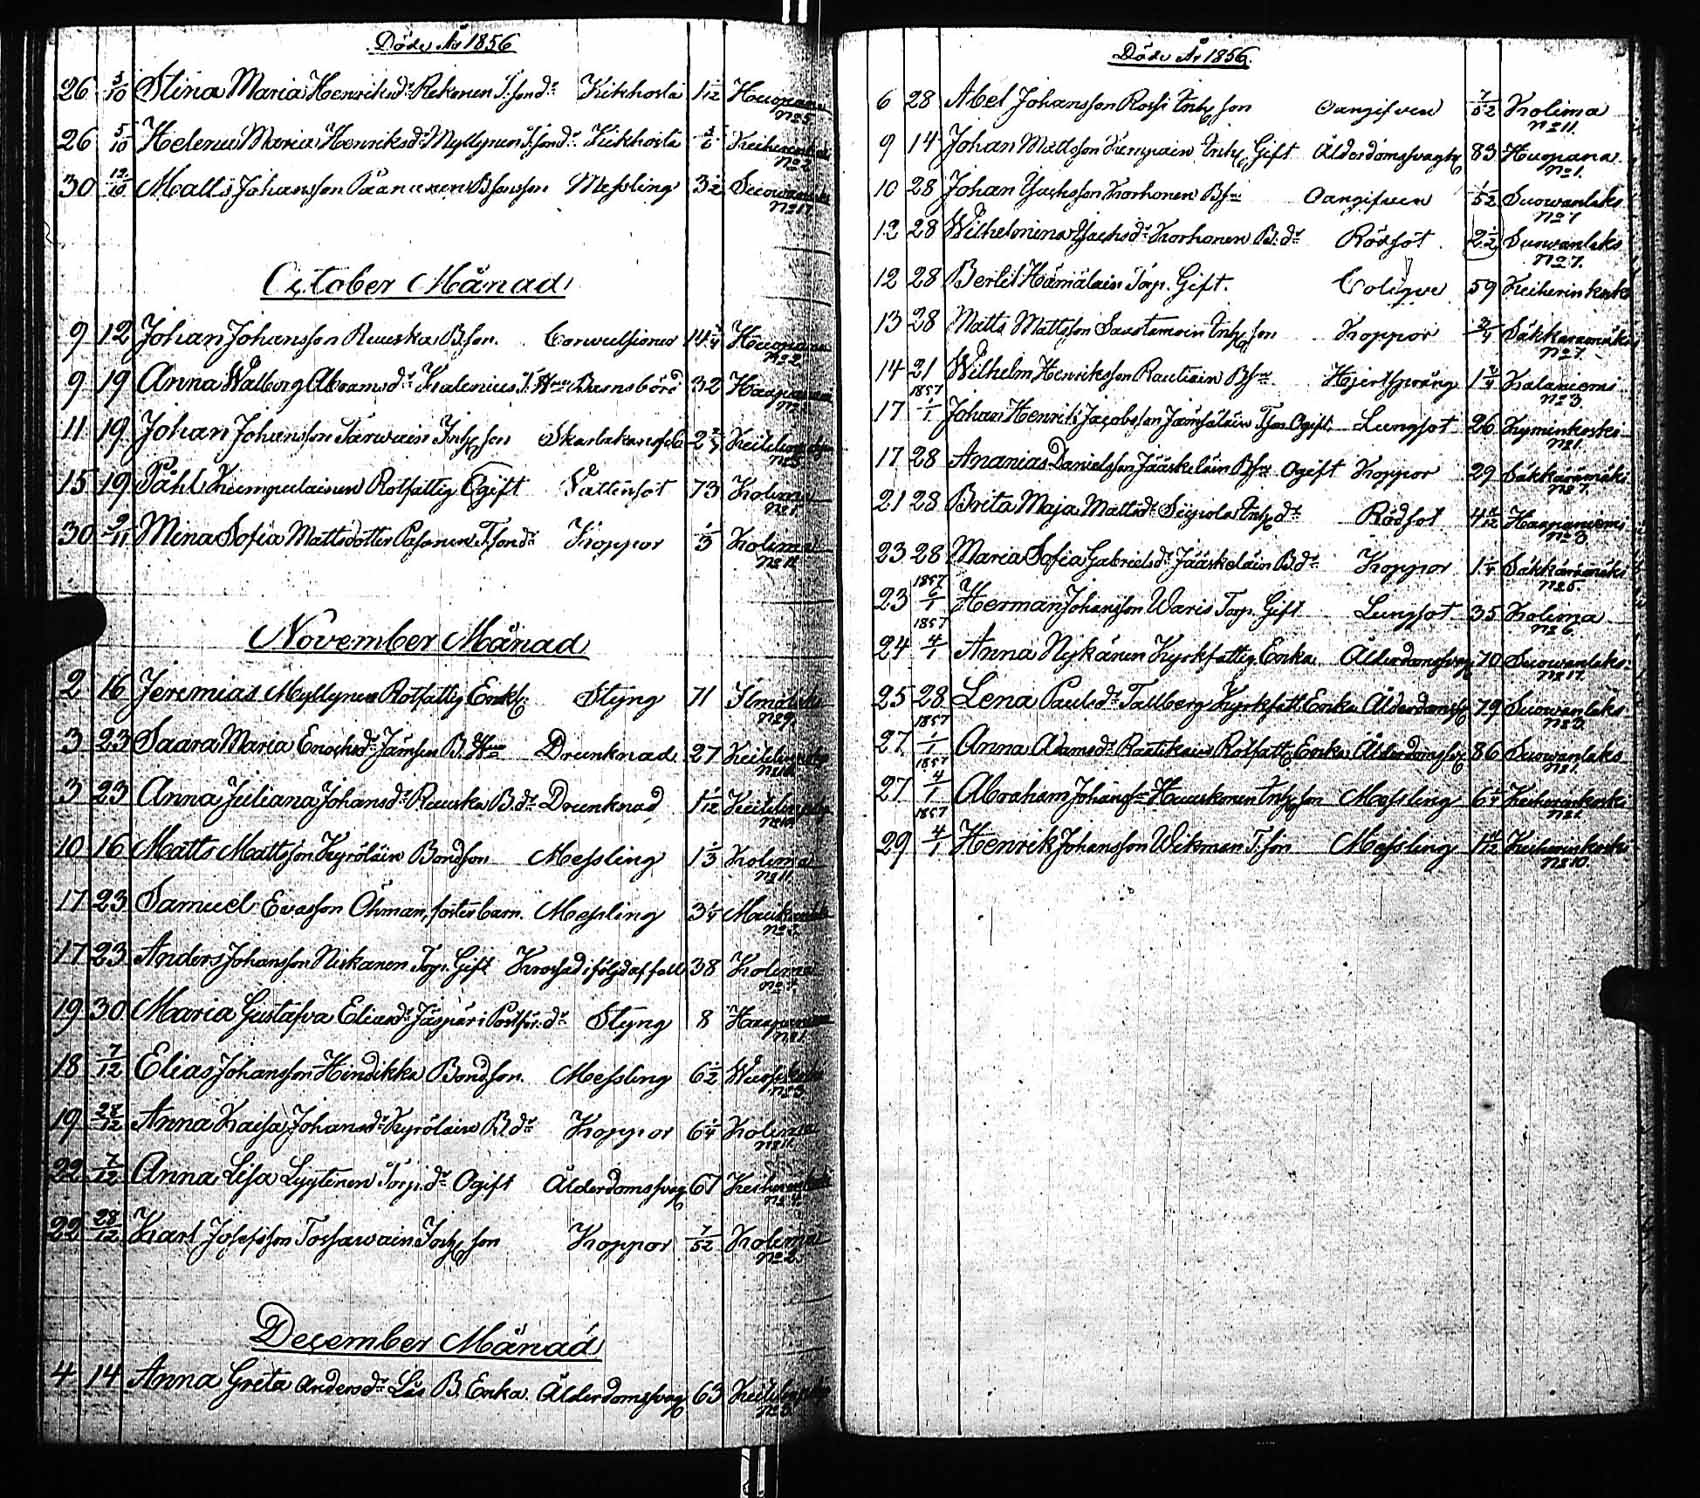 Döde År 1856
26 5/10 Stina Maria Henriksdr Rekonen T.sondr Kikhosta 1 1/12 Huopana
No 5
26 5/10 Helena Maria Henriksdr Myllynen T.sondr Kikhosta Keiherinkoski
No 2
30 12/10 Matts Johansson Paananen B.sonson Messling 3 1/2 Suowanlaks
No 17
October Månad
9 12 Johan Johansson Ruuska B.son. Convulsioner 14 Huopana
No 2
9 19 Anna Walborg Abramsdr Kalenius T.Hu Barnsbörd 32 Haapaniemi
11 19 Johan Johansson Tarwain Inh.son Skarlakansfeb 2 Keitelepohja
No 5
15 19 Påhl Kumpulainen Rotfattig Ogift Vattusot 73 Kolima
No 1.
30 9/11 Mina Sofia Mattsdotter Pasanen T.sondr Koppor 1/3 Kolima
No 11
November Månad
2 16 Jeremias Myllynen Rotfattig Enkl. Styng 71 Ilmolaks
No 9
3 23 Saara Maria Enochsdr Jämsen B. Hu Drunknad 27 Keitelepohja
No 10
3 23 Anna Juliana Johansdr Ruuska B.dr Drunknad 1/12 Keitelepohja
No 10
10 16 Matts Mattsson Kyröläin Bondson Messling 1 1/3 Kolima
No 11
17 23 Samuel Evasson Öhman, fosterbarn. Messling 3 1/4
17 23 Anders Johansson Niskanen Torp. Gift Krossad i följd af fall 38 Kolima
19 30 Maria Gustafva Eliasdr Jäspäri Postför. dr Styng 8 Haapaniemi
No 1.
18 7/12 Elias Johansson Hindikka Bondson. Messling 6 1/2
No 3
19 28/12 Anna Kaisa Johansdr Kyröläin B.dr Koppor 6 1/4 Kolima
No 11
22 7/12 Anna Lisa Lyytinen Torp. dr Ogift Ålderdomssvag 67 Keiherinkoski
22 28/12 Karl Josefsson Tossawain Inh. son Koppor 7/52 Kolima
No 2
December Månad
4 14 Anna Greta Andersdr Lås B. Enka. Ålderdomssvag 63 Keitelepohja
No 5
Döde År 1856.
6 28 Abel Johansson Rossi Inh. son Oangifven 7/52 Kolima
No 11.
9 14 Johan Mattsson Kumpain Inh. Gift Ålderdomssvaghet 83 Huopana
No 1.
10 28 Johan Isacksson Korhonen B.son Oangifven 1/52 Suowanlaks
No 7
12 28 Wilhelmina Isacksdr Korhonen B.dr Rödsot 2 1/2 Suowanlaks
No 7.
12 28 Bertil Hämäläin Torp. Gift. Colique 59 Keiherinkoski
13 28 Matts Mattsson Sawstemoin Inh. son Koppor 3/4 Säkkärämäki
No 7.
14 21 Wilhelm Henriksson Rautiain B.son Hjertsprång 1 Kalaniemi
No 3.
17 1857 1/1 Johan Henrik Jacobsson Jämsäläin T.son Ogift. Lungsot 26 Kyminkoski
No 1.
17 28 Ananias Danielsson Jääskeläin B.son Ogift Koppor 29 Säkkärämäki
No 7.
21 28 Brita Maja Mattsdr Seppola Inh. dr Rödsot 4 Haapaniemi
No 3
23 28 Maria Sofia Gabrielsdr Jääskeläin B.dr Koppor 1 1/4 Säkkärämäki
No 5.
23 1857 6/1 Herman Johansson Waris Torp. Gift Lungsot 35 Kolima
No 6.
24 1857 4/1 Anna Nykänen Kyrkfattig Enka. Ålderdomssvag 70 Suowanlaks
No 17.
25 28 Lena Paulsdr Tallberg Kyrkfatt. Enka Ålderdomssv 79 Suowanlaks
No 3.
27 1857 1/1 Anna Adamsdr Raatikain Rotfattig Enka Ålderdomssv 86 Suowanlaks
No 1.
27 1857 4/1 Abraham Johanss Hauskonen Inh. son Messling 6 1/4 Keiherinkoski
No 1.
29 1857 4/1 Henrik Johansson Wikman T.son Messling 1 Keiherinkoski
No 10.